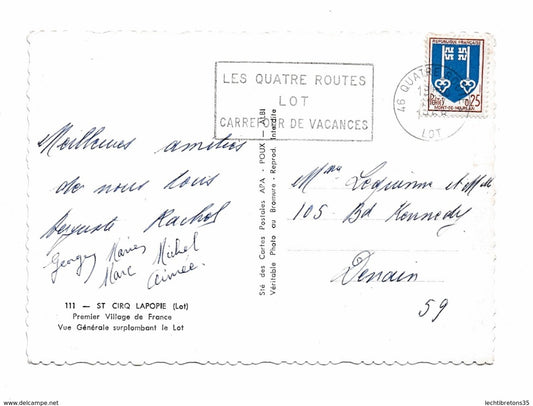 LES QUATRE ROUTES
LOT
CARREFOUR DE VACANCES
46 QUATRE
LOT
REPUBLIQUE FRANÇAISE
0,25
MONT-DE-MARSAN
Meilleures amitiés
de nous tous
Auguste Rachel
Georges
Marc Michel
Aimée.
111 — ST CIRQ LAPOPIE (Lot)
Premier Village de France
Vue Générale surplombant le Lot
Sté des Cartes Postales APA - POUX - ALBI
Véritable Photo au Bromure - Reprod. Interdite
Mme Lequienne et Mlle
105 Bd Kennedy
Denain
59
www.delcampe.net
lechtibretons35